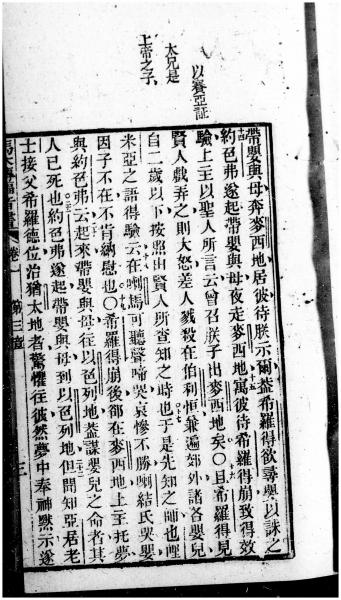 以賽亞証
太兄是
上帝之子
帶嬰與母奔麥西地居彼待朕示爾蓋希羅得欲尋嬰以誅之
約色弗遂起帶嬰與母夜走麥西地寓彼待希羅得崩致得效
驗上主以聖人所言云曾召朕子出麥西地矣〇且希羅得見
賢人戲弄之則大怒差人戮殺在伯利恒兼遍郊外諸各嬰兒
自二歲以下按照由賢人所查知之時也于是先知之師也哩
米亞之語得驗云在喇馬可聽聲啼哭哀慘不勝喇結氏哭嬰
因子不在不肯納慰也〇希羅得崩後郤在麥西地上主托夢
與約色弗云起來帶嬰與母往以色列地蓋謀嬰兒之命者其
人已死也約色弗遂起帶嬰與母到以色列地但聞知亞居老
士接父希羅德位治猶太地者驚懼往彼然夢中奉神默示遂
卷一
第三章
三